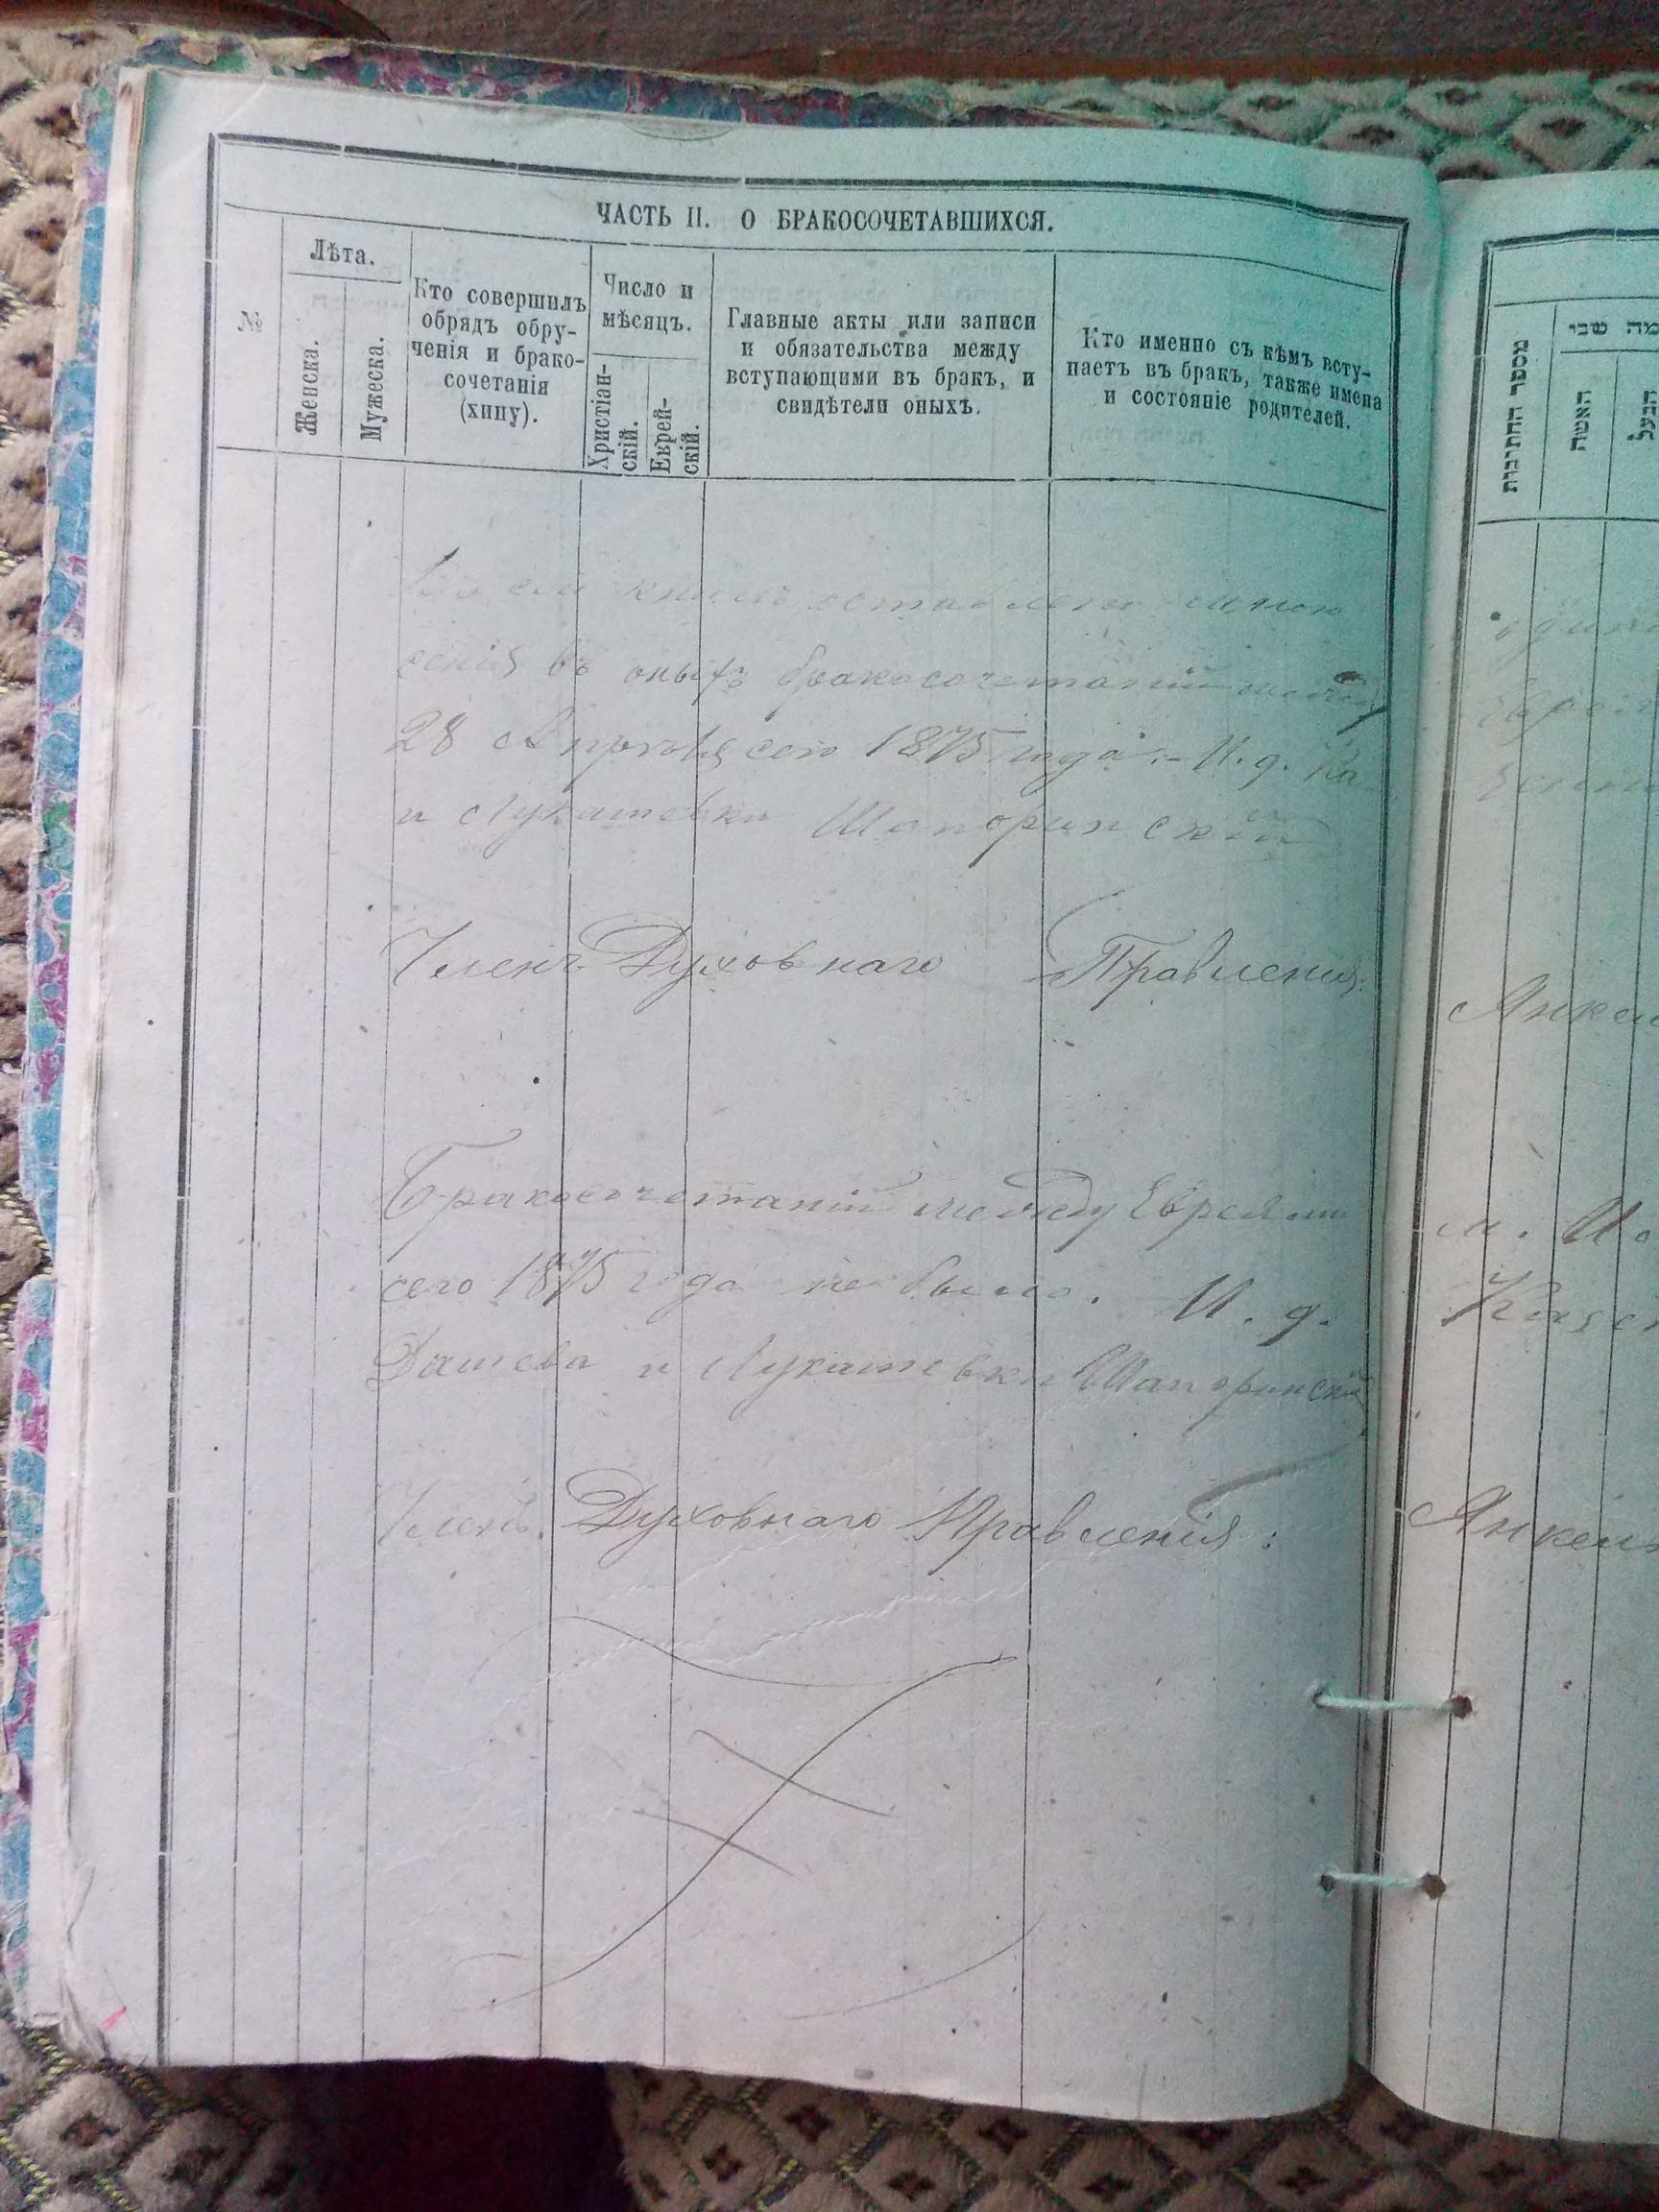 ЧАСТЬ II. О БРАКОСОЧЕТАВШИХСЯ.
№
Лѣта.
Женска.
Мужеска.
Кто совершилъ
обрядъ обру-
ченія и брако-
сочетанія
(хипу).
Число и
мѣсяцъ.
Христіан-
скій.
Еврей-
скій.
Главные акты или записи
и обязательства между
вступающими въ бракъ, и
свидѣтели оныхъ.
Кто именно съ кѣмъ всту-
паетъ въ бракъ, также имена
и состояніе родителей.
сей книги оставлено мною
сенія въ оныхъ бракосочетаній между
28 Апрѣля сего 1875 года. И. д. Ка
и Лукашевки Шапоринскій
Членъ Духовнаго Правленія:
Бракосочетаній между Евреями
сего 1875 года не было. И. д.
Дашева и Лукашевки Шапоринскій
Членъ Духовнаго Правленія:
מספר החתונות
האשה
הבעל
Янкел
м. И
Казен
Янкель